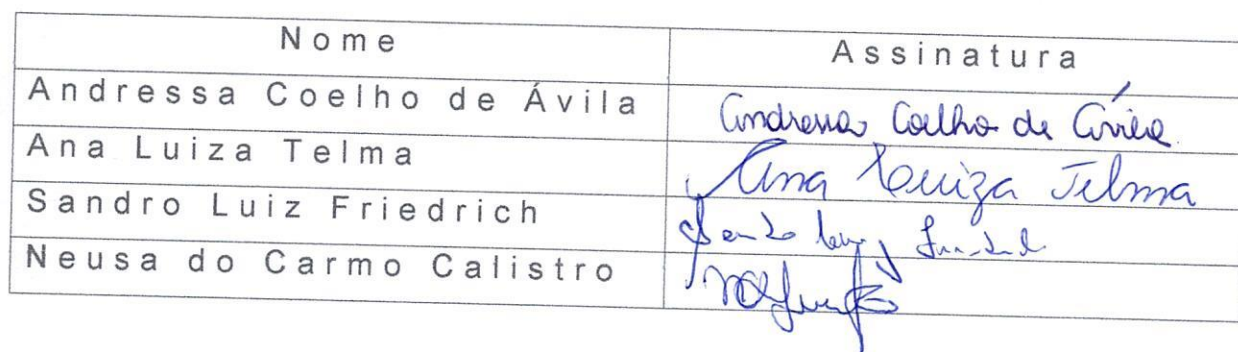 Nome Assinatura
Andressa Coelho de Ávila Andressa Coelho de Ávila
Ana Luiza Telma Ana Luiza Telma
Sandro Luiz Friedrich
Neusa do Carmo Calistro